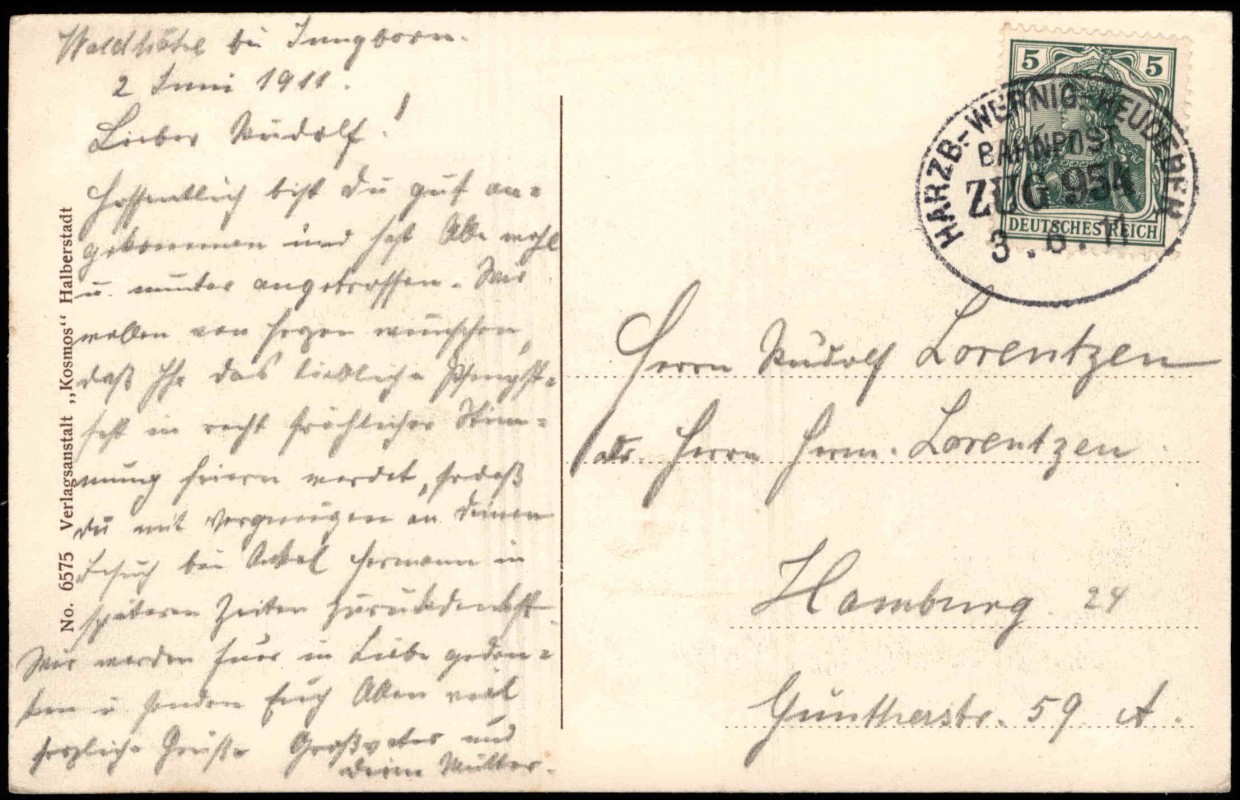 Waldhöhe bei Jungborn.
2 Juni 1911.
Lieber Rudolf!
Hoffentlich bist Du gut an-
gekommen und hast Alle wohl
u. munter angetroffen. Wir
wollen von Herzen wünschen,
daß Ihr das liebliche Pfingst-
fest in recht fröhlicher Stim-
mung feiern werdet, sodaß
Du mit Vergnügen an Deinen
Besuch bei Onkel Hermann in
späteren Zeiten zurückdenkst.
Wir werden Euer in Liebe geden-
ken u senden Euch Allen viel
herzliche Grüße Großvater und
Deine Mutter.
No. 6575 Verlagsanstalt „Kosmos" Halberstadt
5 5
DEUTSCHES REICH
HARZB.-WERNIG.-HEUDEBER
BAHNPOST
ZUG 954
3.6.11
Herrn Rudolf Lorentzen
adr. Herrn Herm. Lorentzen
Hamburg 24
Güntherstr. 59 A.